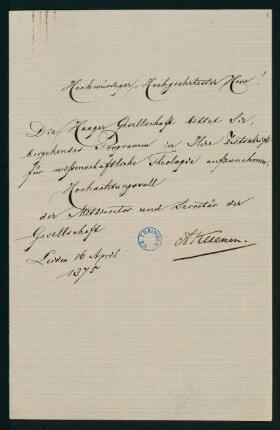 Hochwürdiger, Hochgelehrtester Herr!
Die Haager Gesellschaft bittet Sie,
hiergehendes Programm in Ihre Zeitschrift
für wissenschaftliche Theologie aufzunehmen.
Hochachtungsvoll
der Mitdirector und Secretär der
Gesellschaft
Leiden 16 April
1875
A Kuenen.